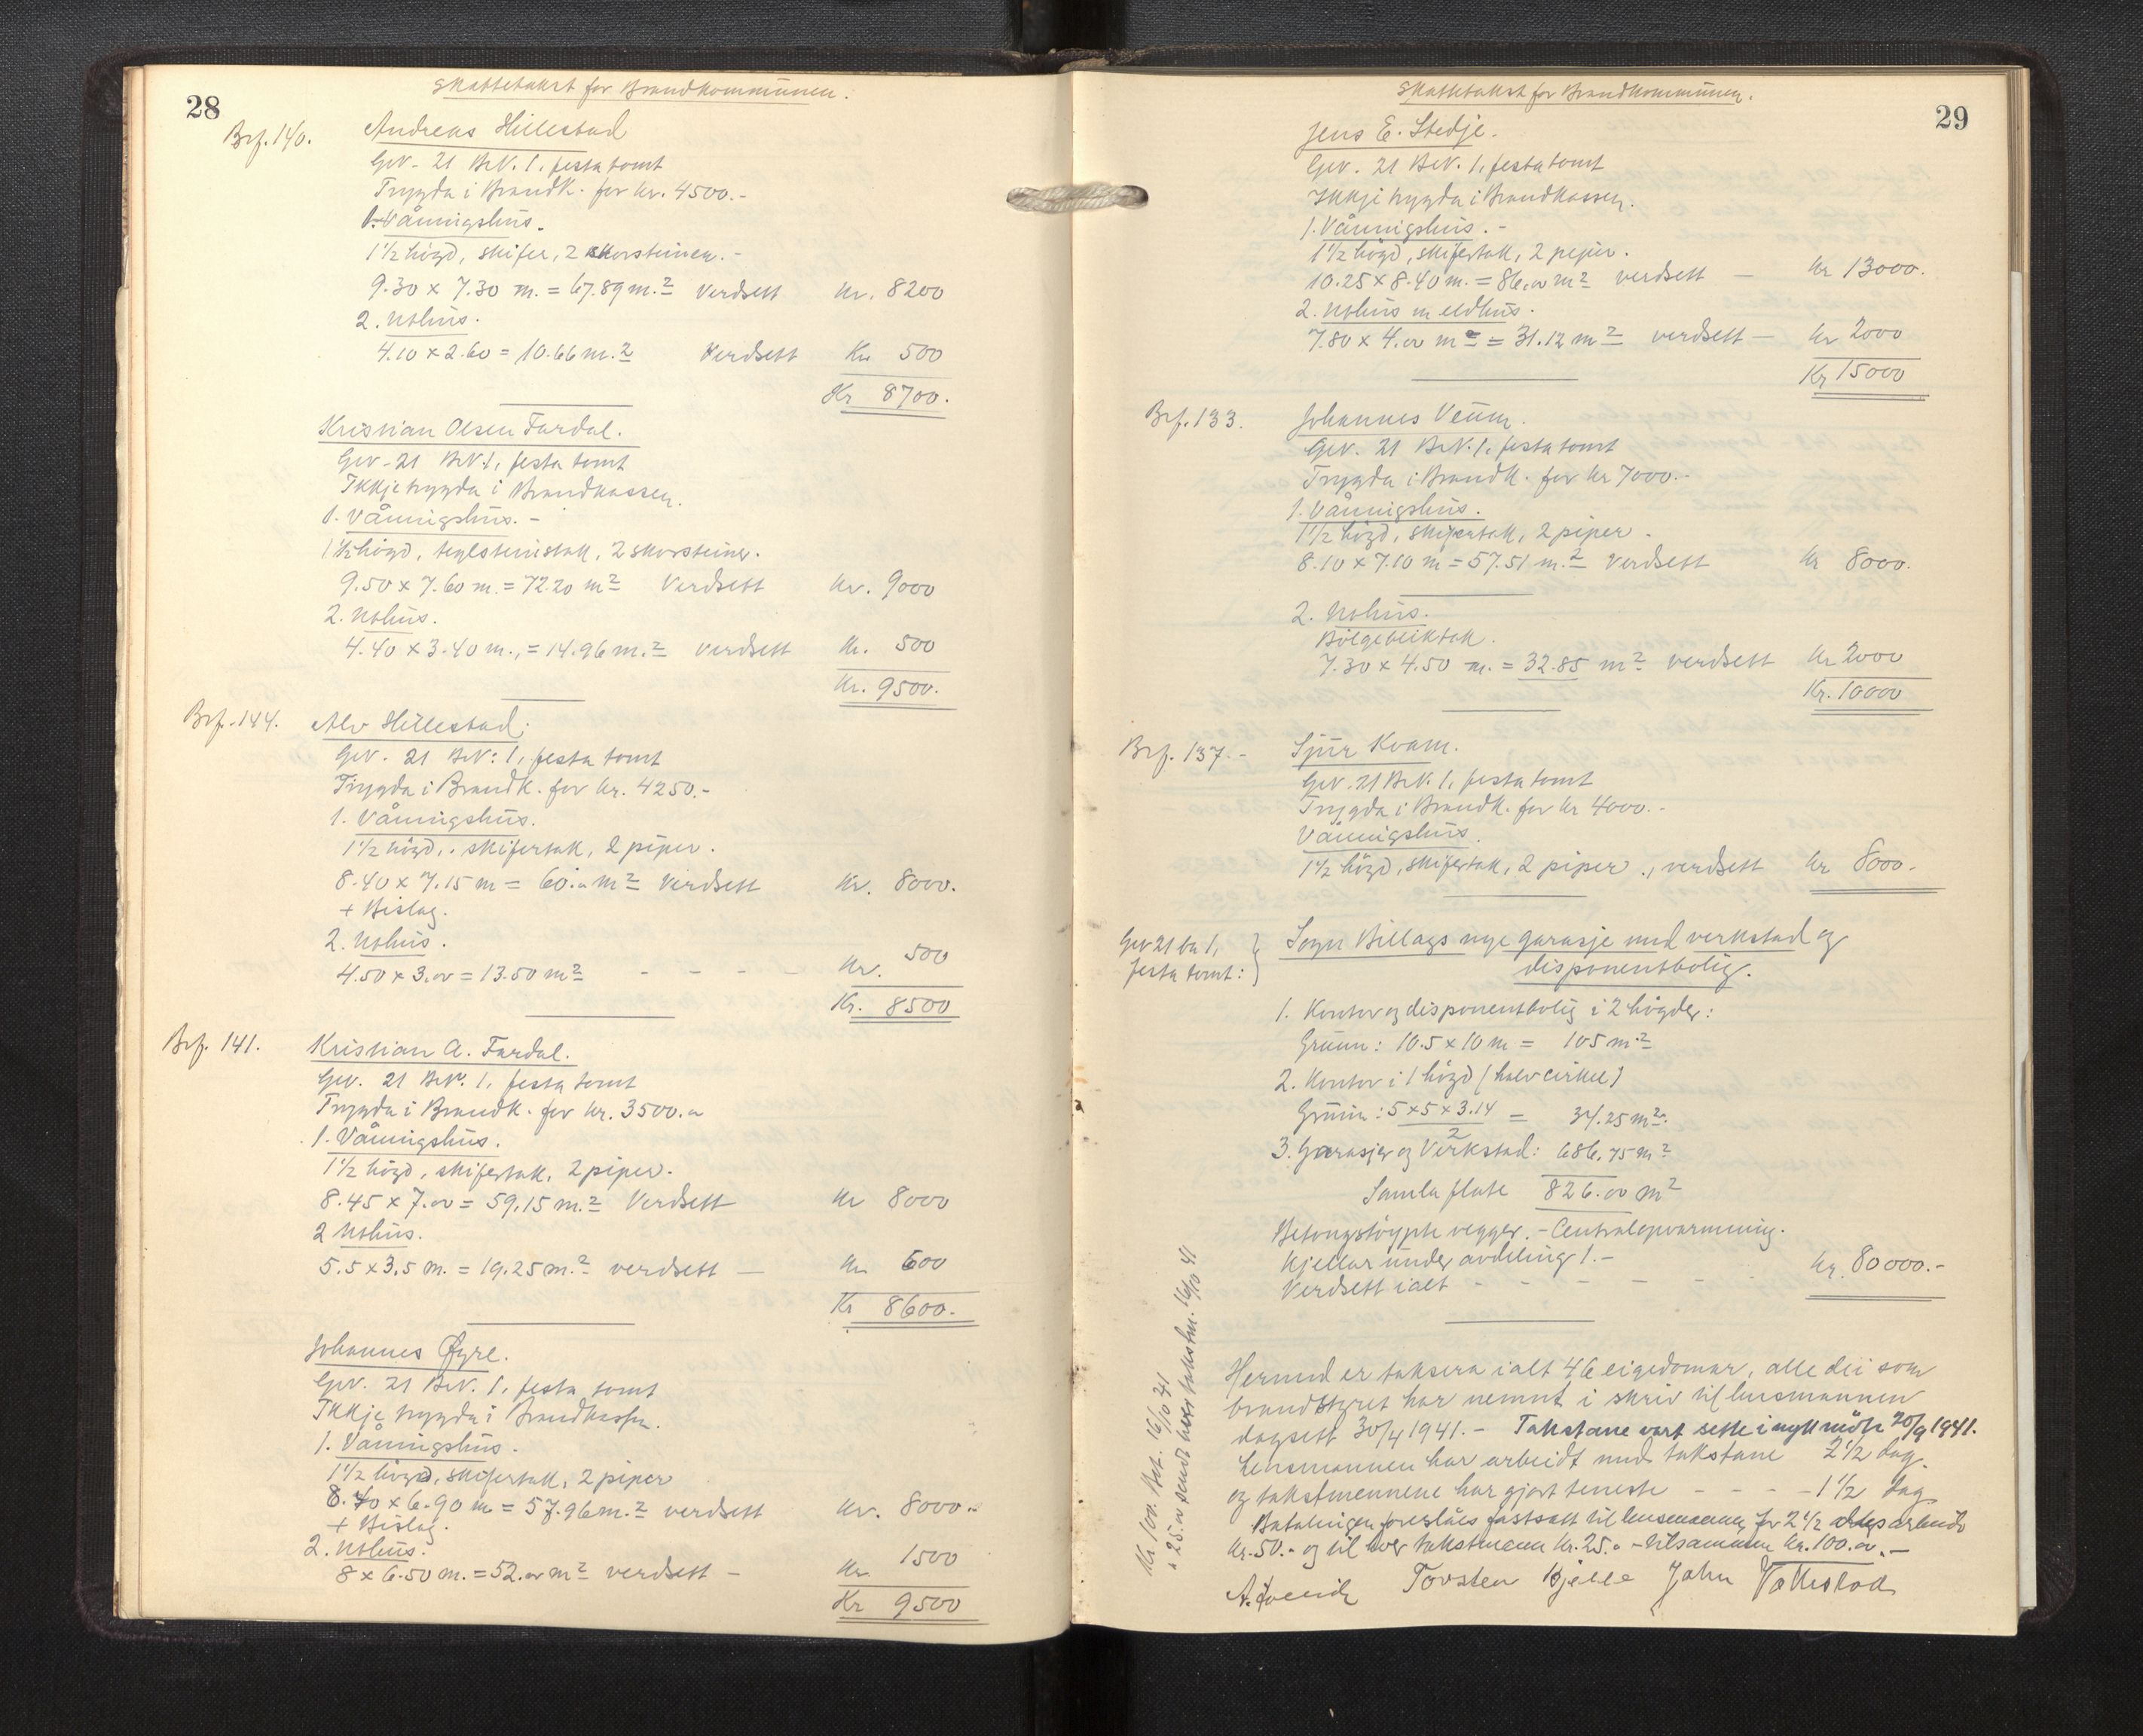 28
Skattetakst for Brandkommunen.
Brf. 140.
Andreas Hillestad
Gnr. 21 BrN. 1, festa tomt
Trygda i Brandk. for kr. 4500.-
1. Våningshus.
1 1/2 högd, skifer, 2 skorsteinen.-
9.30 x 7.30 m. = 67.89 m.2 Verdsett Kr. 8200
2. Uthus.
4.10 x 2.60 = 10.66 m.2 Verdsett Kr 500
Kr 8700.
Kristian Olsen Fardal.
Gnr. 21 BrN. 1, festa tomt
Ikkje trygda i Brandkassen.
1. Våningshus.-
1 1/2 högd, teglsteinstak, 2 skorsteiner.
9.50 x 7.60 m. = 72.20 m2 Verdsett Kr. 9000
2. Uthus.
4.40 x 3.40 m., = 14.96 m.2 verdsett Kr. 500
Kr. 9500.
Brf. 144.
Alv Hillestad.
Gnr. 21 BrN: 1, festa tomt
Trygda i Brandk. for kr. 4250.-
1. Våningshus.
1 1/2 högd, skifertak, 2 piper.
8.40 x 7.15 m = 60.00 m2 Verdsett Kr. 8000.
+ Bislag.
2. Uthus.
4.50 x 3.00 = 13.50 m2 - - - - Kr. 500
Kr. 8500
Brf. 141.
Kristian A. Fardal.
Gnr. 21 BrN. 1, festa tomt
Trygda i Brandk. for kr. 3500.00
1. Våningshus.
1 1/2 högd, skifertak, 2 piper.
8.45 x 7.00 = 59.15 m.2 Verdsett Kr 8000
2 Uthus.
5.5 x 3.5 m. = 19.25 m.2 verdsett — Kr 600
Kr 8600.-
Johannes Øyre.
Gnr. 21 BrN. 1, festa tomt
Ikkje trygda i Brandkassen.
1. Våningshus.
1 1/2 högd, skifertak, 2 piper
8.40 x 6.90 m = 57.96 m.2 verdsett Kr. 8000.-
+ Bislag.
2. Uthus.
8 x 6.50 m. = 52.00 m2 verdsett - Kr 1500
Kr 9500
29
Skattetakst for Brandkommunen.
Jens E. Stedje.
Gnr. 21 BrN. 1, festa tomt
Ikkje trygda i Brandkassen.
1. Våningshus.-
1 1/2 högd, skifertak, 2 piper.
10.25 x 8.40 m. = 86.00 m2 verdsett — Kr 13000.
2. Uthus m eldhus.
7.80 x 4.00 m = 31.12 m2 verdsett — Kr 2000
Kr 15000
Brf. 133.
Johannes Veum.
Gnr. 21 BrN. 1, festa tomt
Trygda i Brandk. for kr 7000.-
1. Våningshus.
1 1/2 högd, skifertak, 2 piper.
8.10 x 7.10 m = 57.51 m.2 Verdsett Kr 8000.
2. Uthus.
Bölgeblikktak.
7.30 x 4.50 m. = 32.85 m2 verdsett Kr 2000
Kr. 10000
Brf. 137.-
Sjur Kvam.
Gnr. 21 BrN. 1, festa tomt
Trygda i Brandk. for kr 4000.-
Våningshus.
1 1/2 högd, skifertak, 2 piper., verdsett Kr 8000.-
Gnr 21 bn 1,
festa tomt:
Sogn Billags nye garasje med verkstad og
disponentbolig.
1. Kontor og disponentbolig i 2 högder:
Grunn: 10.5 x 10 m = 105 m.2
2. Kontor i 1 högd (halvcirkel)
Grunn: 5 x 5 x 3.14 / 2 = 34.25 m2.
3. Garasje og Verkstad: 686.75 m2
Samla flate 826.00 m2
Betongstöypte vegger.- Centralopvarmning.
Kjellar under avdeling 1.-
Verdsett ialt - - - - - Kr. 80000.-
Hermed er taksera ialt 46 eigedomar, alle dei som
brandstyret har nemnt i skriv til lensmannen
dagsett 30/4 1941.- Takstane vart sette i nytt möte 20/9 1941.
Lensmannen har arbeidt med takstane 2 1/2 dag.
og takstmennene har gjort teneste - - - - 1 1/2 dag
Betalingen foreslåes fastsatt til lensmannen for 2 1/2 dags arbeide
kr. 50.- og til hver takstmann kr. 25.- - tilsammen kr. 100.00.-
Torsten Kjelle John Vallestad
Kr 100. Bet. 16/10 41
25.00 sendt hver takstm. 16/10 41